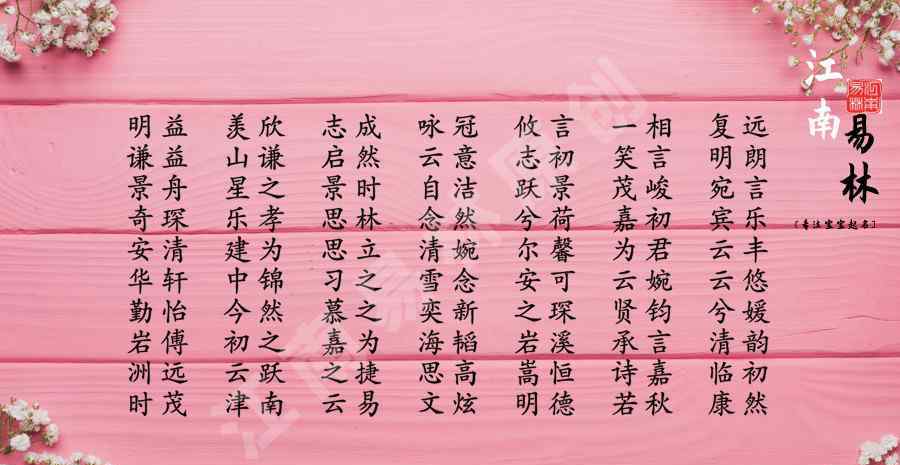 明益 羡欣 志成 咏冠 攸言 一相 复远
谦益 山谦 启然 云意 志初 笑言 明朗
景舟 星之 景时 自洁 跃景 茂峻 宛言
奇琛 乐孝 思林 念然 兮荷 嘉初 宾乐
安清 建为 思立 清婉 尔馨 为君 云丰
华轩 中锦 习之 雪念 安可 云婉 云悠
勤怡 今然 慕之 奕新 之琛 贤钧 兮媛
岩傅 初之 嘉为 海韬 岩溪 承言 清韵
洲远 云跃 之捷 思高 嵩恒 诗嘉 临初
时茂 津南 云易 文炫 明德 若秋 康然
江南
易林
江南易林
〔专注宝宝起名〕
江南易林原创